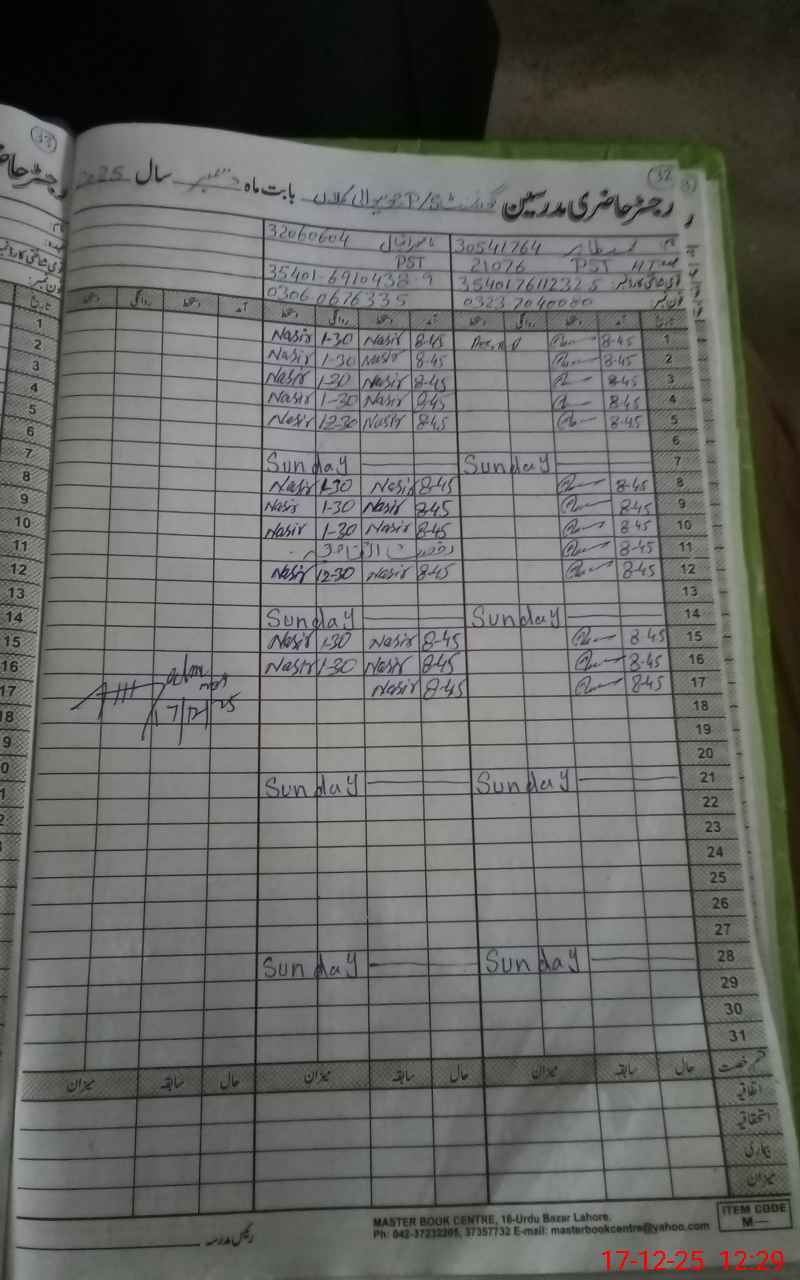 32
رجسٹر حاضری مدرسین گورنمنٹ P/S کلاں بابت ماہ دسمبر سال 2025
30541764 ناصر اقبال 32060604
21076 PST PST
354017611232 5 35401-6910438-9
0323 7040000 0306 0676335
تاریخ آمد دستخط روانگی دستخط آمد دستخط روانگی دستخط آمد دستخط روانگی دستخط
1 8-45 8-45 Nasir 1-30 Nasir
2 8-45 8-45 Nasir 1-30 Nasir
3 8-45 8-45 Nasir 1-30 Nasir
4 8-45 8-45 Nasir 1-30 Nasir
5 8-45 8-45 Nasir 12-30 Nasir
6
7 Sunday Sunday
8 8-45 8-45 Nasir 1-30 Nasir
9 8-45 8-45 Nasir 1-30 Nasir
10 8-45 8-45 Nasir 1-30 Nasir
11 8-45
12 8-45 8-45 Nasir 12-30 Nasir
13
14 Sunday Sunday
15 8-45 8-45 Nasir 1-30 Nasir
16 8-45 8-45 Nasir 1-30 Nasir
17 8-45 8-45 Nasir
17/12/25
18
19
20
21 Sunday Sunday
22
23
24
25
26
27
28 Sunday Sunday
29
30
31
قسم رخصت حال سابقہ میزان حال سابقہ میزان حال سابقہ میزان
اتفاقیہ
استحقاقیہ
بیماری
میزان
رئیس مدرسہ
MASTER BOOK CENTRE, 16-Urdu Bazar Lahore.
Ph: 042-37232205, 37357732 E-mail: masterbookcentre@yahoo.com
ITEM CODE
M—
33
1
2
3
4
5
6
7
8
9
10
11
12
13
14
15
16
17
18
17-12-25 12:29